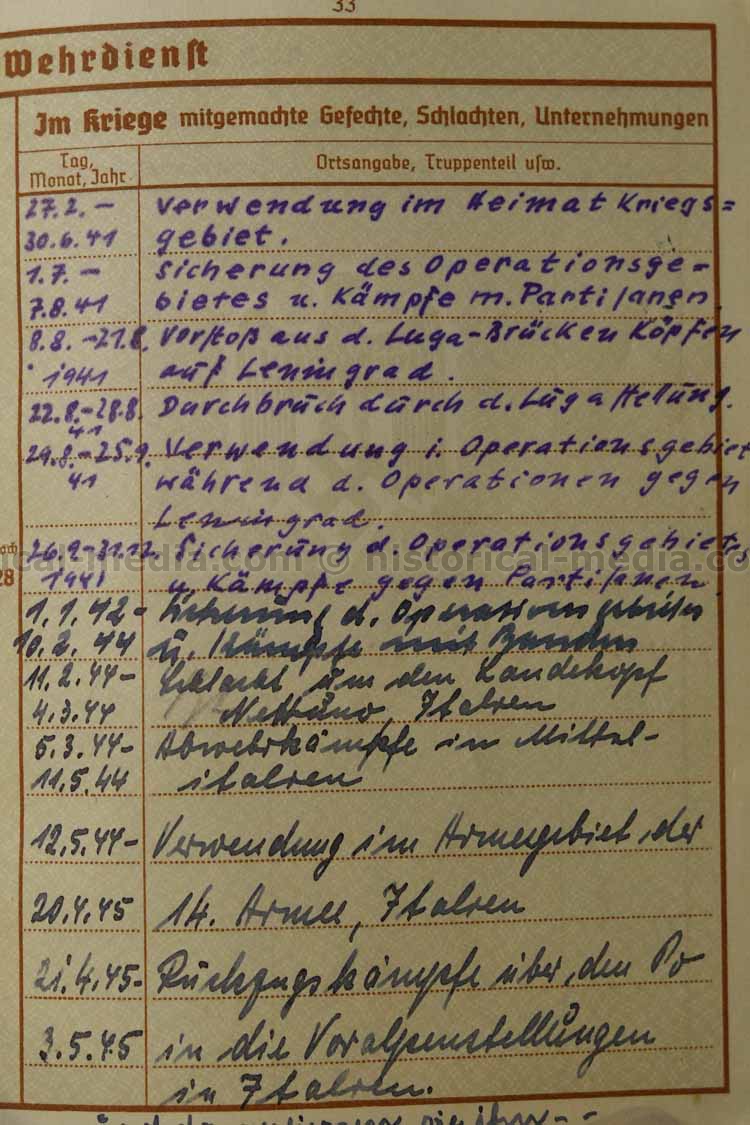 33
Wehrdienst
Im Kriege mitgemachte Gefechte, Schlachten, Unternehmungen
Tag, Monat, Jahr
Ortsangabe, Truppenteil usw.
27.2. – Verwendung im Heimat Kriegs=
30.6.41 gebiet.
1.7. – Sicherung des Operationsge=
7.8.41 bietes u. Kämpfe m. Partisanen
8.8. – 21.8. Vorstoß aus d. Luga-Brücken Köpfen
1941 auf Leningrad.
22.8. – 28.8. Durchbruch durch d. Lugastellung.
41
29.8. – 25.9. Verwendung i. Operationsgebiet
41 während d. Operationen gegen
Leningrad.
26.9. – 31.12. Sicherung d. Operationsgebietes
1941 u. Kämpfe gegen Partisanen
28
1.1.42 – Sicherung d. Operationsgebietes
10.2.44 u. Kämpfe mit Banden
11.2.44 – Schlacht um den Landekopf
4.3.44 Nettuno, Italien
5.3.44 – Abwehrkämpfe in Mittel-
11.5.44 italien
12.5.44 – Verwendung im Armeegebiet der
20.4.45 14. Armee, Italien
21.4.45 – Rückzugskämpfe über den Po
3.5.45 in die Voralpenstellungen
in Italien.
historical-media.com © historical-media.com